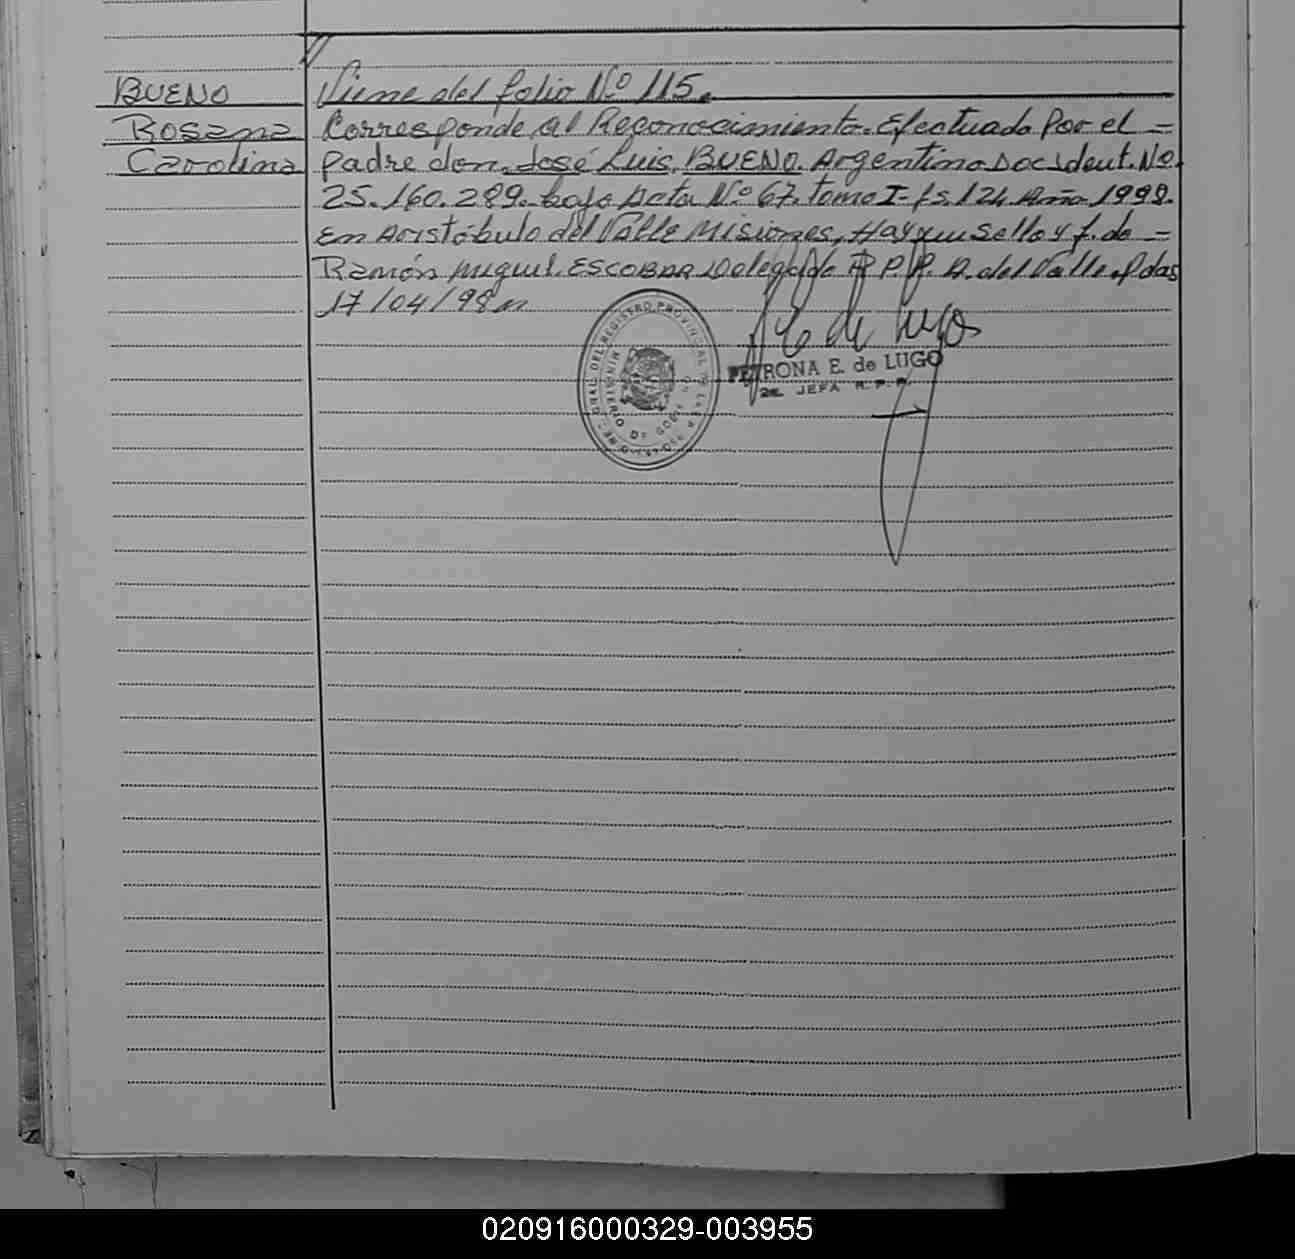 BUENO
Rosana
Carolina
Viene del folio Nº 115.
Corresponde al Reconocimiento. Efectuado Por el =
padre don. José Luis. BUENO. Argentino Doc. Ident. Nº.
25.160.289. bajo Acta Nº 67. tomo I- fs. 124 Año 1998.
En Aristóbulo del Valle Misiones, Hay un Sello y f. de =
Ramón Miguel. ESCOBAR Delegado R. P. P. A. del Valle Pdas
17/04/98
PETRONA E. de LUGO
JEFA R.P.P.
020916000329-003955